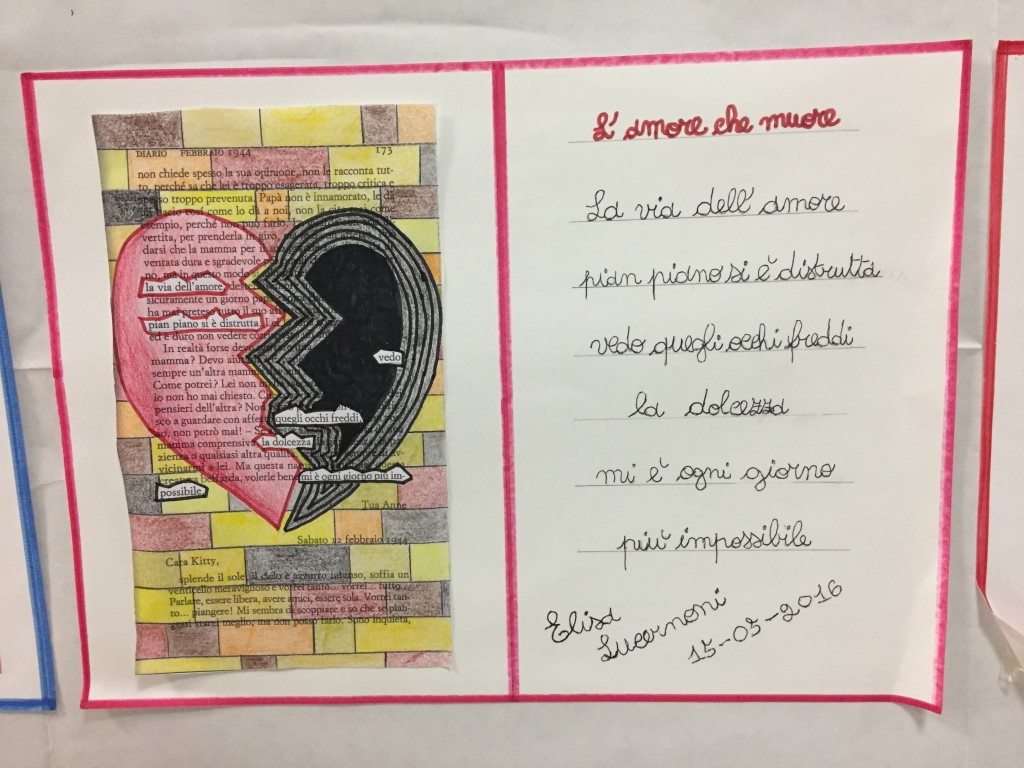 DIARIO FEBBRAIO 1944 173
non chiede spesso la sua opinione, non le racconta tut-
to, perché sa che lei è troppo esagerata, troppo critica e
spesso troppo prevenuta. Papà non è innamorato, le dà
come lo dà a noi, non la
esempio, perché non può farlo.
vertita, per prenderla in giro,
darsi che la mamma per il
ventata dura e sgradevole
no, ma in questo modo
la via dell'amore
sicuramente un giorno papà
ha mai preteso tutto il suo
pian piano si è distrutta
ed è duro non vedere
In realtà forse
mamma? Devo
sempre un'altra
Come potrei? Lei non
io non ho mai chiesto.
vedo
pensieri dell'altra? Non
sco a guardare con quegli occhi freddi,
so, non potrò mai! –
mamma comprensiva, la dolcezza
zienza o qualsiasi altra
vicinarmi a lei. Ma questa
beffarda, volerle bene mi è ogni giorno più im-
possibile.
Tua Anne
Sabato 12 febbraio 1944
Cara Kitty,
splende il sole, il cielo è azzurro intenso, soffia un
venticello meraviglioso e vorrei tanto... vorrei... tutto...
Parlare, essere libera, avere amici, essere sola. Vorrei tan-
to... piangere! Mi sembra di scoppiare e so che se pian-
gessi starei meglio, ma non posso farlo. Sono inquieta,
L'amore che muore
La via dell'amore
pian piano si è distrutta
vedo quegli occhi freddi
la dolcezza
mi è ogni giorno
più impossibile
Elisa
Lucernoni
15-05-2016